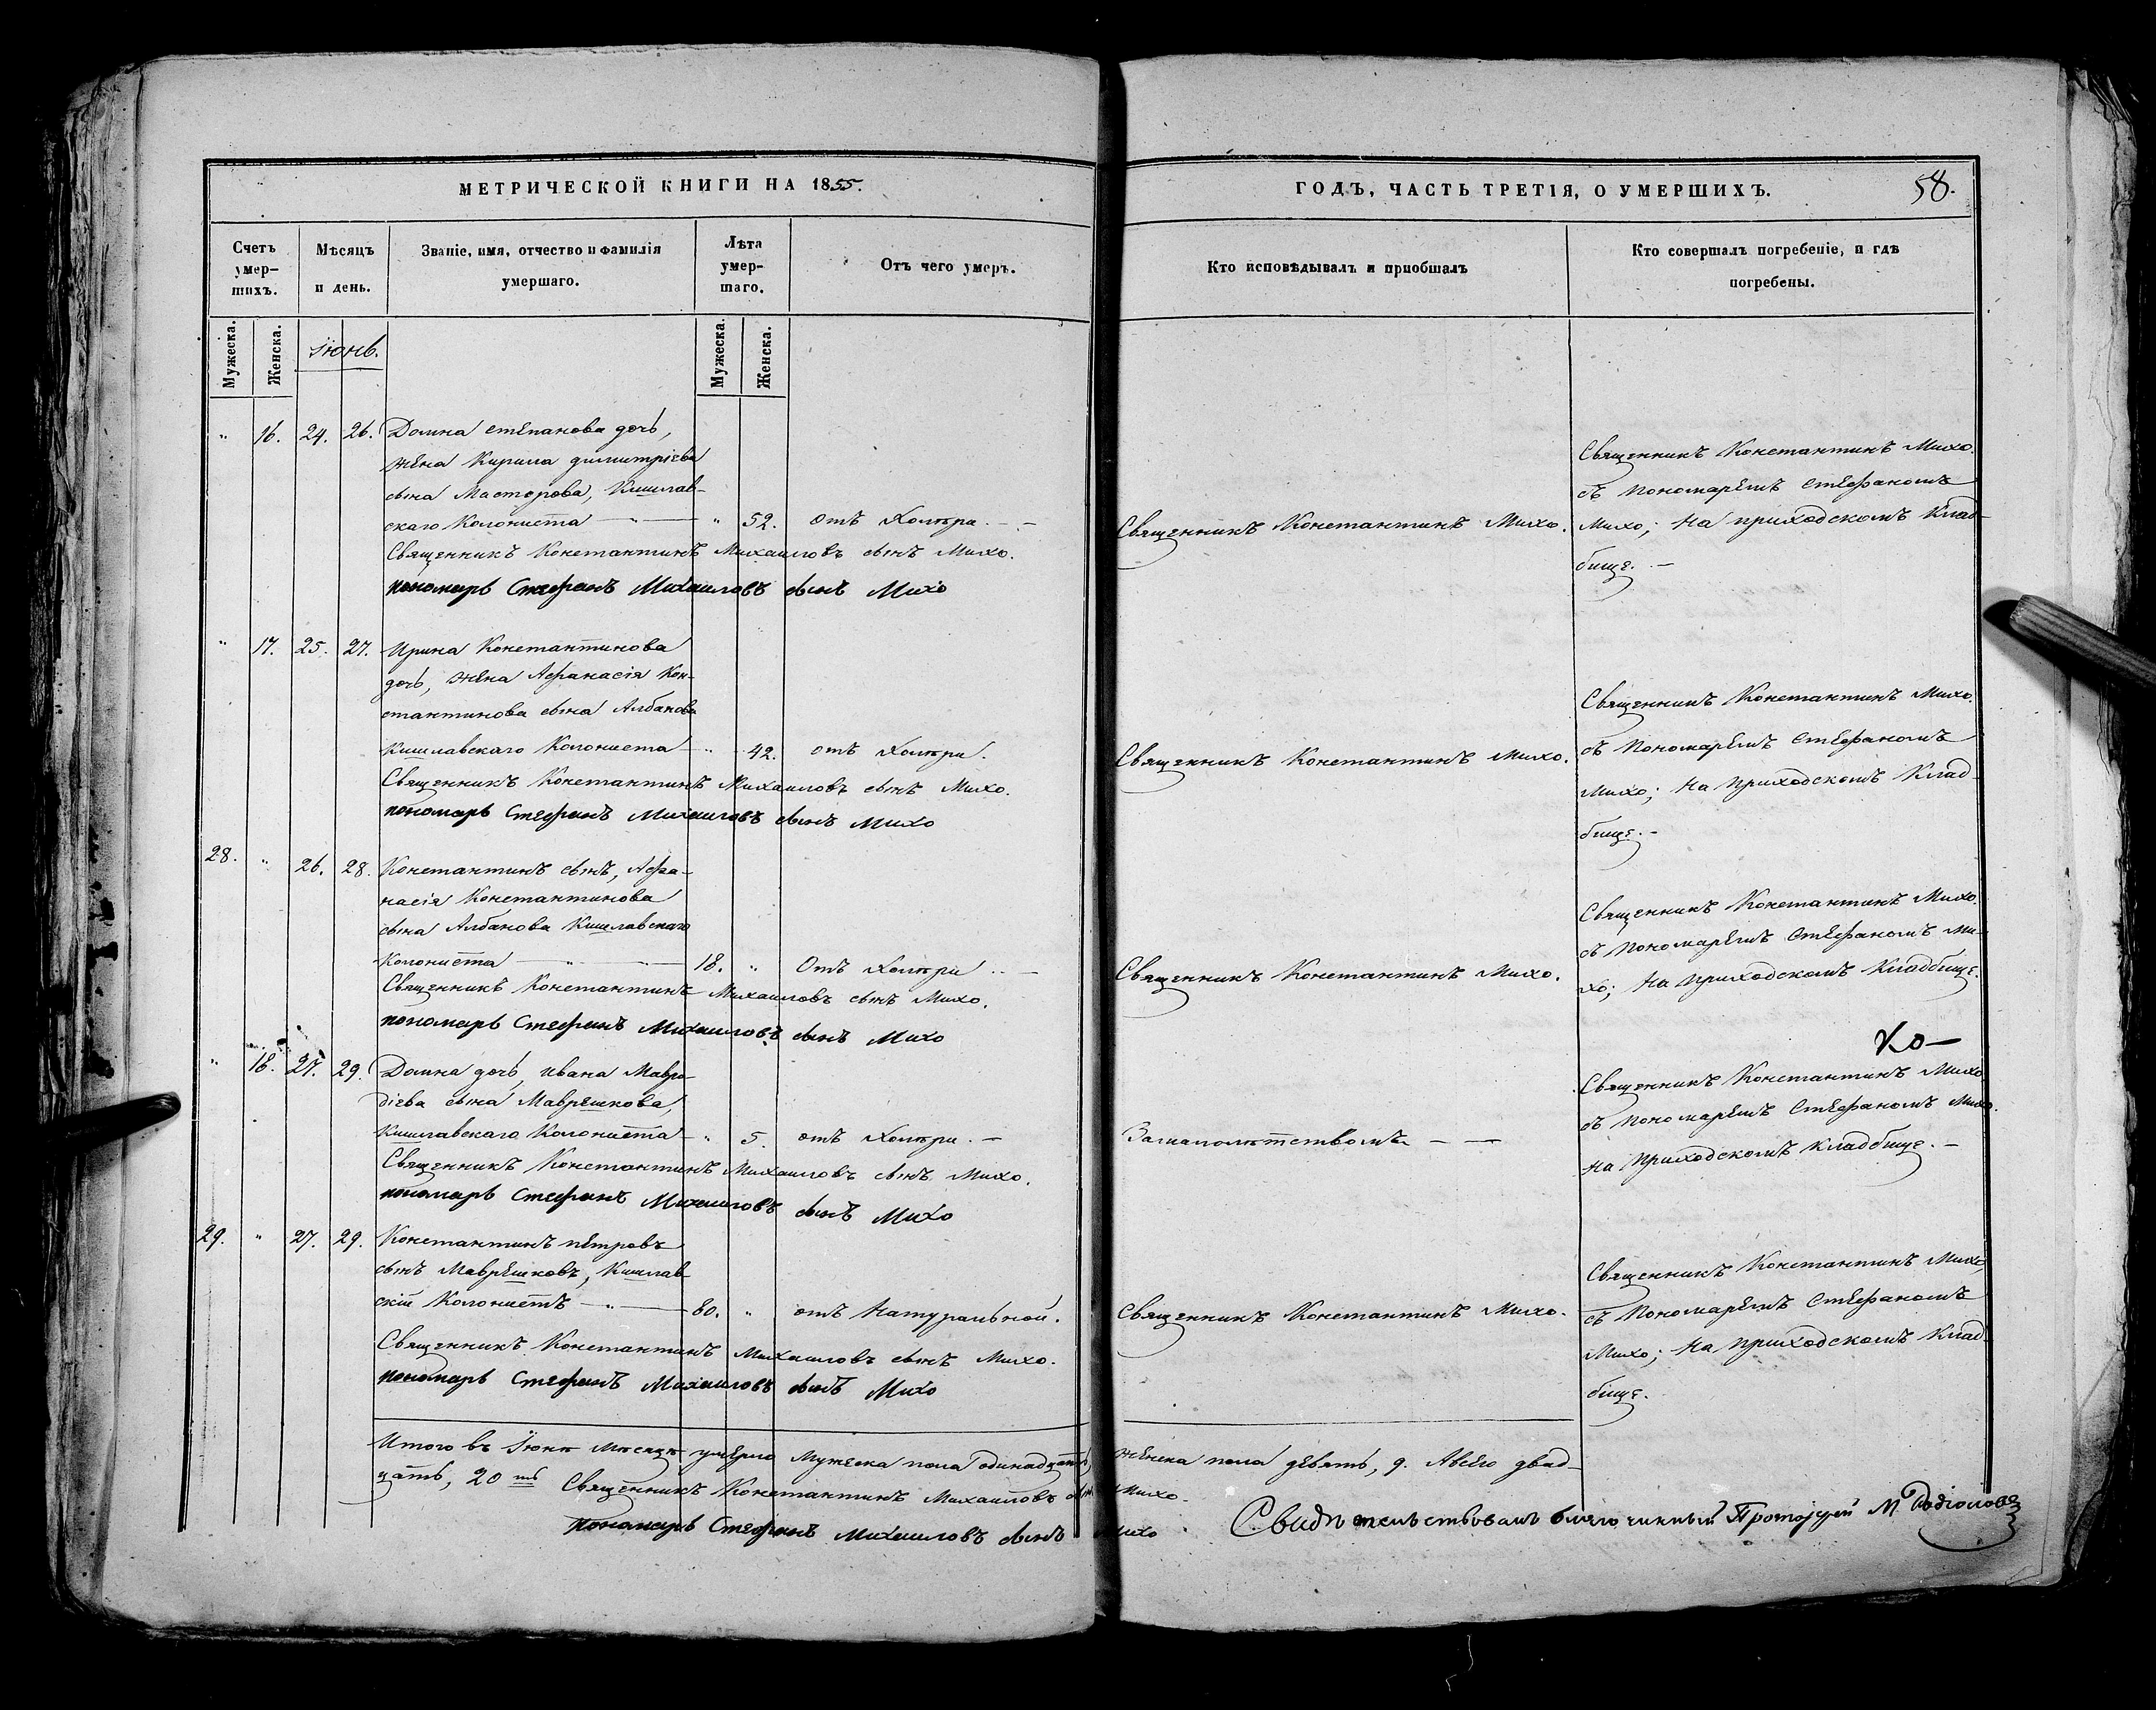 МЕТРИЧЕСКОЙ КНИГИ НА 1855.
Счетъ умер-шихъ.
Мѣсяцъ и день.
Званіе, имя, отчество и фамилія умершаго.
Лѣта умер-шаго.
Отъ чего умеръ.
Мужеска.
Женска.
Мужеска.
Женска.
Іюнь.
" 16. 24. 26. Домна Степанова дочь,
жена Кирила димитріева
сына Масторова, Кишлав-
скаго Колониста — " — " 52. отъ Холѣри. —
Священникъ Константинъ Михаиловъ сынъ Михо.
пономарь Стефанъ Михаиловъ сынъ Михо
" 17. 25. 27. Ирина Константинова
дочь, жена Афанасія Кон-
стантинова сына Албанова
Кишлавскаго Колониста — " 42. отъ Холѣри.
Священникъ Константинъ Михаиловъ сынъ Михо.
пономарь Стефанъ Михаиловъ сынъ Михо
28. " 26. 28. Константинъ сынъ, Афа-
насія Константинова
сына Албанова Кишлавскаго
Колониста — " — " — 18. " Отъ Холѣри —
Священникъ Константинъ Михаиловъ сынъ Михо.
пономарь Стефанъ Михаиловъ сынъ Михо
" 18. 27. 29. Домна дочь, Ивана Мавро-
діева сына Маврешкова,
Кишлавскаго Колониста — " 5. отъ Холѣри. —
Священникъ Константинъ Михаиловъ сынъ Михо.
пономарь Стефанъ Михаиловъ сынъ Михо
29. " 27. 29. Константинъ петровъ
сынъ Маврешковъ, Кишлав-
скій Колонистъ — " — 80. " отъ Натуральной.
Священникъ Константинъ Михаиловъ сынъ Михо.
пономарь Стефанъ Михаиловъ сынъ Михо
Итого въ Іюнѣ мѣсяцѣ умерло Мужеска пола одинадцать,
цать, 20ть Священникъ Константинъ Михаиловъ сынъ
пономарь Стефанъ Михаиловъ сынъ
ГОДЪ, ЧАСТЬ ТРЕТІЯ, О УМЕРШИХЪ.
58.
Кто исповѣдывалъ и пріобщалъ
Кто совершалъ погребеніе, и гдѣ
погребены.
Священникъ Константинъ Михо.
Священникъ Константинъ Михо.
съ Пономаремъ Стефаномъ
Михо; На приходскомъ Клад-
бище. —
Священникъ Константинъ Михо.
Священникъ Константинъ Михо.
съ Пономаремъ Стефаномъ
Михо; На приходскомъ Клад-
бище. —
Священникъ Константинъ Михо.
Священникъ Константинъ Михо.
съ Пономаремъ Стефаномъ Ми-
хо; На приходскомъ Кладбище.
Замалолѣтствомъ — —
Священникъ Константинъ Михо
съ Пономаремъ Стефаномъ Михо.
на приходскомъ Кладбище. —
Священникъ Константинъ Михо.
Священникъ Константинъ Михо,
съ Пономаремъ Стефаномъ
Михо; На приходскомъ Клад-
бище.
женска пола девять, 9. Авсего двад-
Михо.
Михо
Свидѣтельствовалъ благочинный Протоіерей М